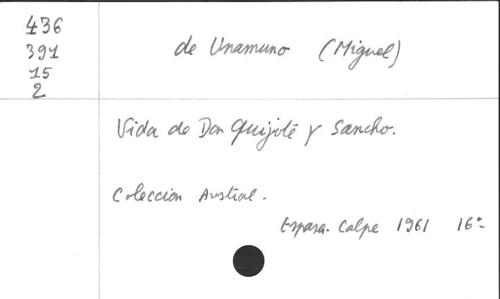 436
391
15
2
de Unamuno (Miguel)
Vida de Don Quijoté y Sancho.
Coleccion Austral.
Espasa-Calpe 1961 16°